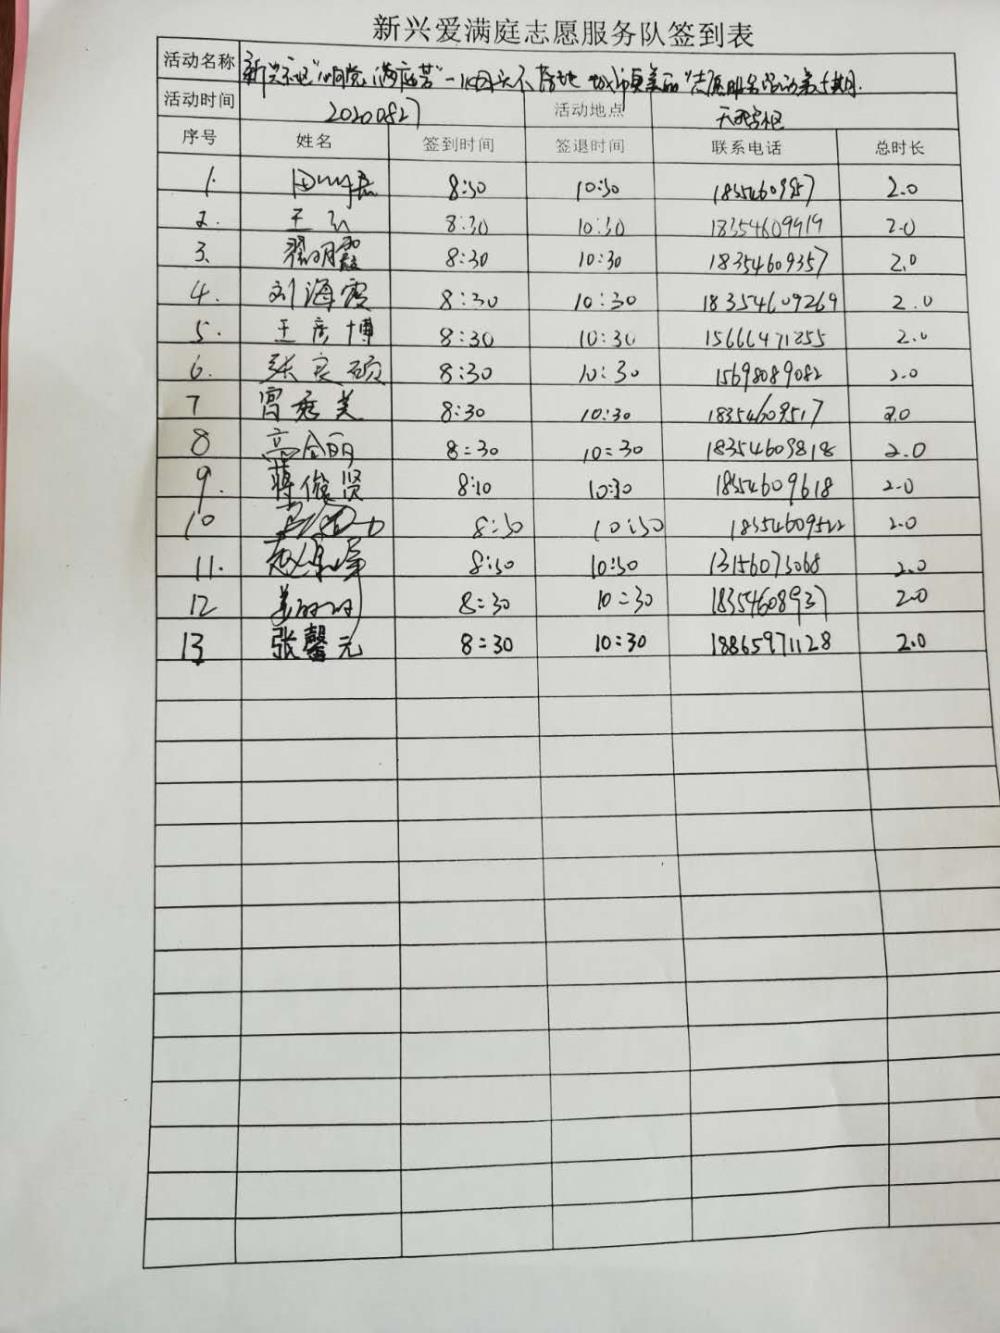 新兴爱满庭志愿服务队签到表
活动名称 新兴社区"心向党 满庭芳"一烟头不落地 城市更美丽"志愿服务活动第十期
活动时间 20200827 活动地点
序号 姓名 签到时间 签退时间 联系电话 总时长
1. 8:30 10:30 2.0
2. 王 8:30 10:30 18354609919 2.0
3. 翟明霞 8:30 10:30 18354609357 2.0
4. 刘海霞 8:30 10:30 18354609269 2.0
5. 王彦博 8:30 10:30 15666471255 2.0
6. 张 8:30 10:30 15698089082 2.0
7 曹秀美 8:30 10:30 18354609517 2.0
8 高全丽 8:30 10:30 18354609818 2.0
9. 蒋俊贤 8:30 10:30 18354609618 2.0
10 8:30 10:30 18354609522 2.0
11. 赵 8:30 10:30 13156073068 2.0
12 姜 8:30 10:30 18354608937 2.0
13 张馨元 8:30 10:30 18865971128 2.0